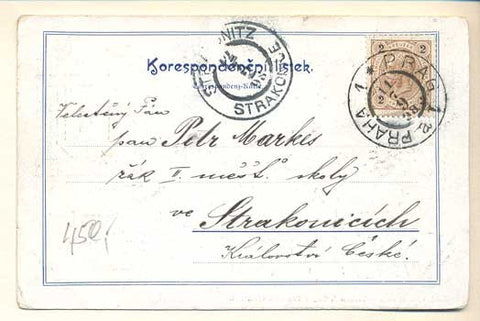 Korespondenční lístek.
Correspondenz-Karte.
STRAKONITZ
STRAKONICE
2 2
2
PRAG 1
PRAHA 1
Veletěný Pán
pan Petr Markes
žák II. měšť. školy
ve
Strakonicích
Království České.
450,-